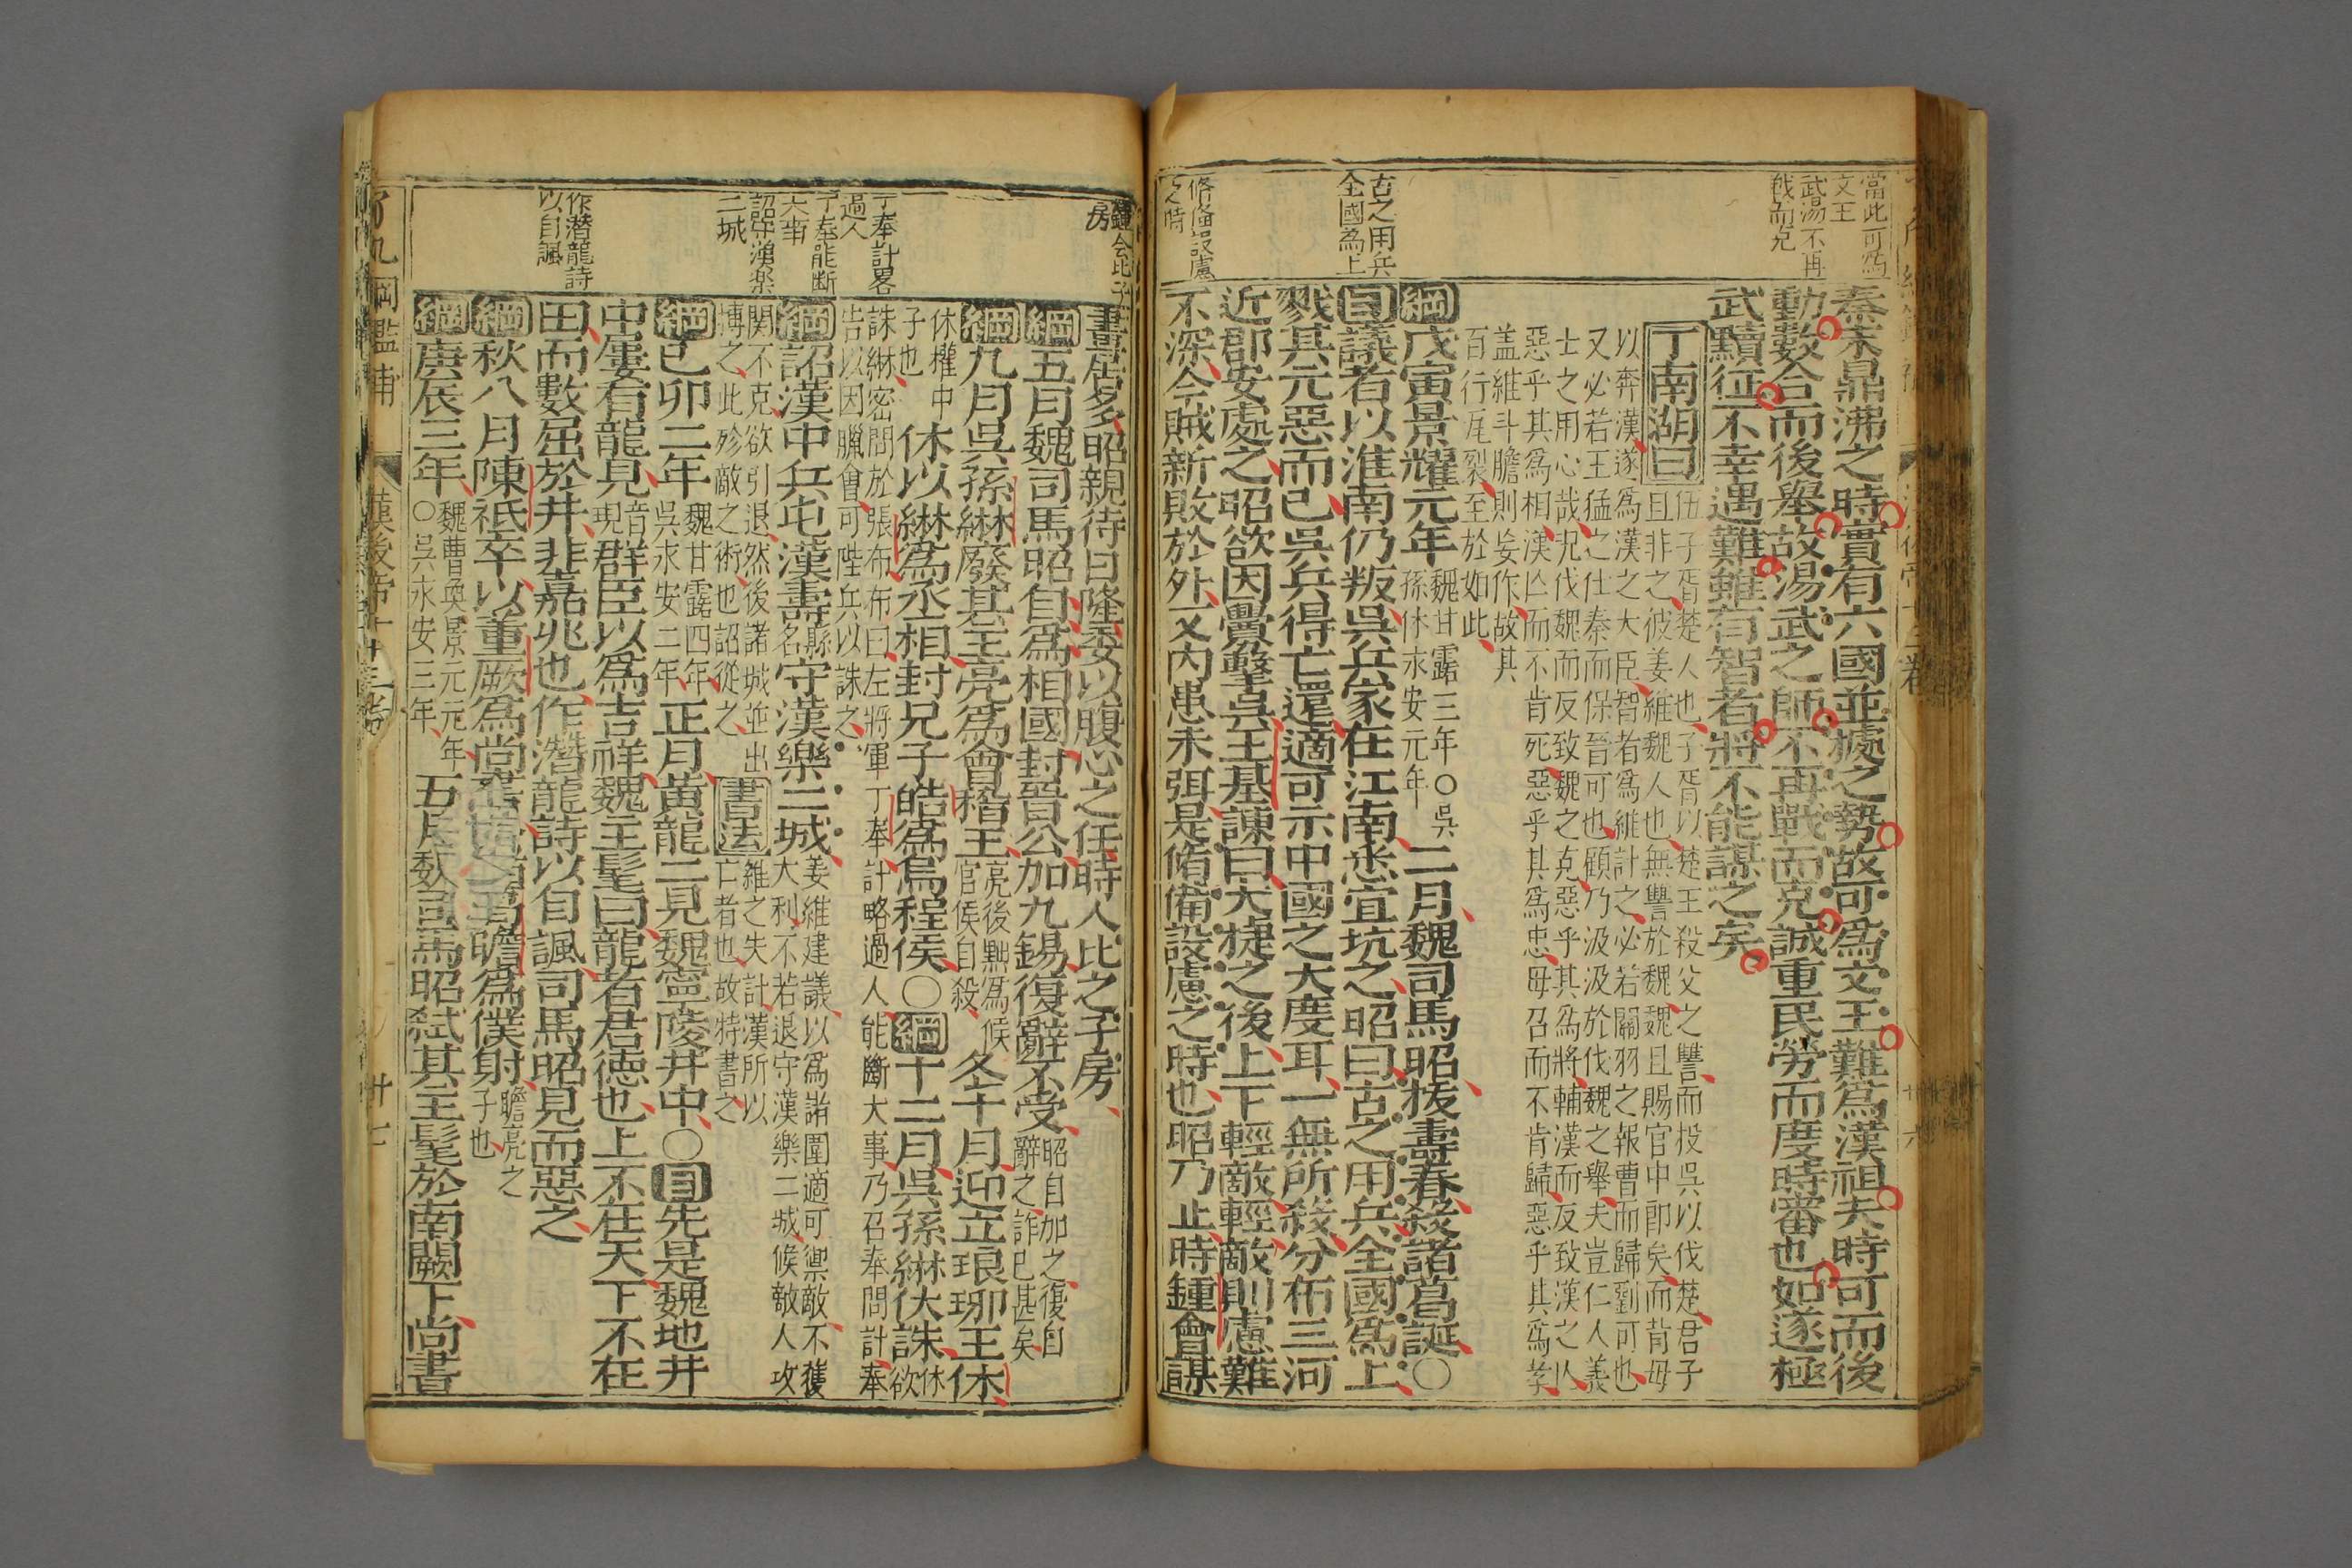 當此可爲
文王
武湯不再
戰而克
古之用兵
全國爲上
脩備設慮
之時
秦末鼎沸之時實有六國並據之勢故可爲文王難爲漢祖夫時可而後
動數合而後舉故湯武之師不再戰而克誠重民勞而度時審也如遂極
武黷征不幸遇難雖有智者將不能謀之矣
丁南湖曰
伍子胥楚人也子胥以楚王殺父之讐而投吳以伐楚君子
且非之彼姜維魏人也無釁於魏魏且賜官中郎矣而背母
以奔漢遂爲漢之大臣智者爲維計之必若關羽之報曹而歸劉可也
又必若王猛之仕秦而保晉可也顧乃汲汲於伐魏之舉夫豈仁人義
士之用心哉況伐魏而反致魏之克惡乎其爲將輔漢而反致漢之人
惡乎其爲相漢亡而不肯死惡乎其爲忠母召而不肯歸惡乎其爲孝
蓋維斗膽則妄作故其
百行瓦裂至於如此
綱戊寅景耀元年
魏甘露三年○吳
孫休永安元年
二月魏司馬昭拔壽春殺諸葛誕○
目議者以淮南仍叛吳兵家在江南悉宜坑之昭曰古之用兵全國爲上
戮其元惡而已吳兵得亡還適可示中國之大度耳一無所殺分布三河
近郡安處之昭欲因釁擊吳王基諫曰大捷之後上下輕敵輕敵則慮難
不深今賊新敗於外又內患未弭是脩備設慮之時也昭乃止時鍾會謀
鍾會比子
房
丁奉計畧
過人
丁奉能斷
大事
詔守漢樂
二城
作潛龍詩
以自諷
畫居多昭親待曰隆委以腹心之任時人比之子房
綱五月魏司馬昭自爲相國封晉公加九錫復辭不受
昭自加之復自
辭之詐已甚矣
綱九月吳孫綝廢其主亮爲會稽王
亮後黜爲候
官侯自殺
冬十月迎立琅琊王休
休權中
子也
休以綝爲丞相封兄子皓爲烏程侯○綱十二月吳孫綝伏誅
休
欲
誅綝密問於張布布曰左將軍丁奉計略過人能斷大事乃召奉問計奉
告以因臘會可陛兵以誅之
綱詔漢中兵屯漢壽
縣
名
守漢樂二城
姜維建議以爲諸圍適可禦敵不獲
大利不若退守漢樂二城候敵人攻
関不克欲引退然後諸城並出
搏之此殄敵之術也詔從之
書法
維之失計漢所以
亡者也故特書之
綱己卯二年
魏甘露四年
吳永安二年
正月黃龍二見魏寧陵井中○目先是魏地井
中屢有龍見
音
現
群臣以爲吉祥魏主髦曰龍者君德也上不在天下不在
田而數屈於井非嘉兆也作潛龍詩以自諷司馬昭見而惡之
綱秋八月陳祗卒以董厥爲尚書令諸葛瞻爲僕射
瞻亮之
子也
綱庚辰三年
魏曹奐景元元年
○吳永安三年
五月魏司馬昭弑其主髦於南闕下尚書